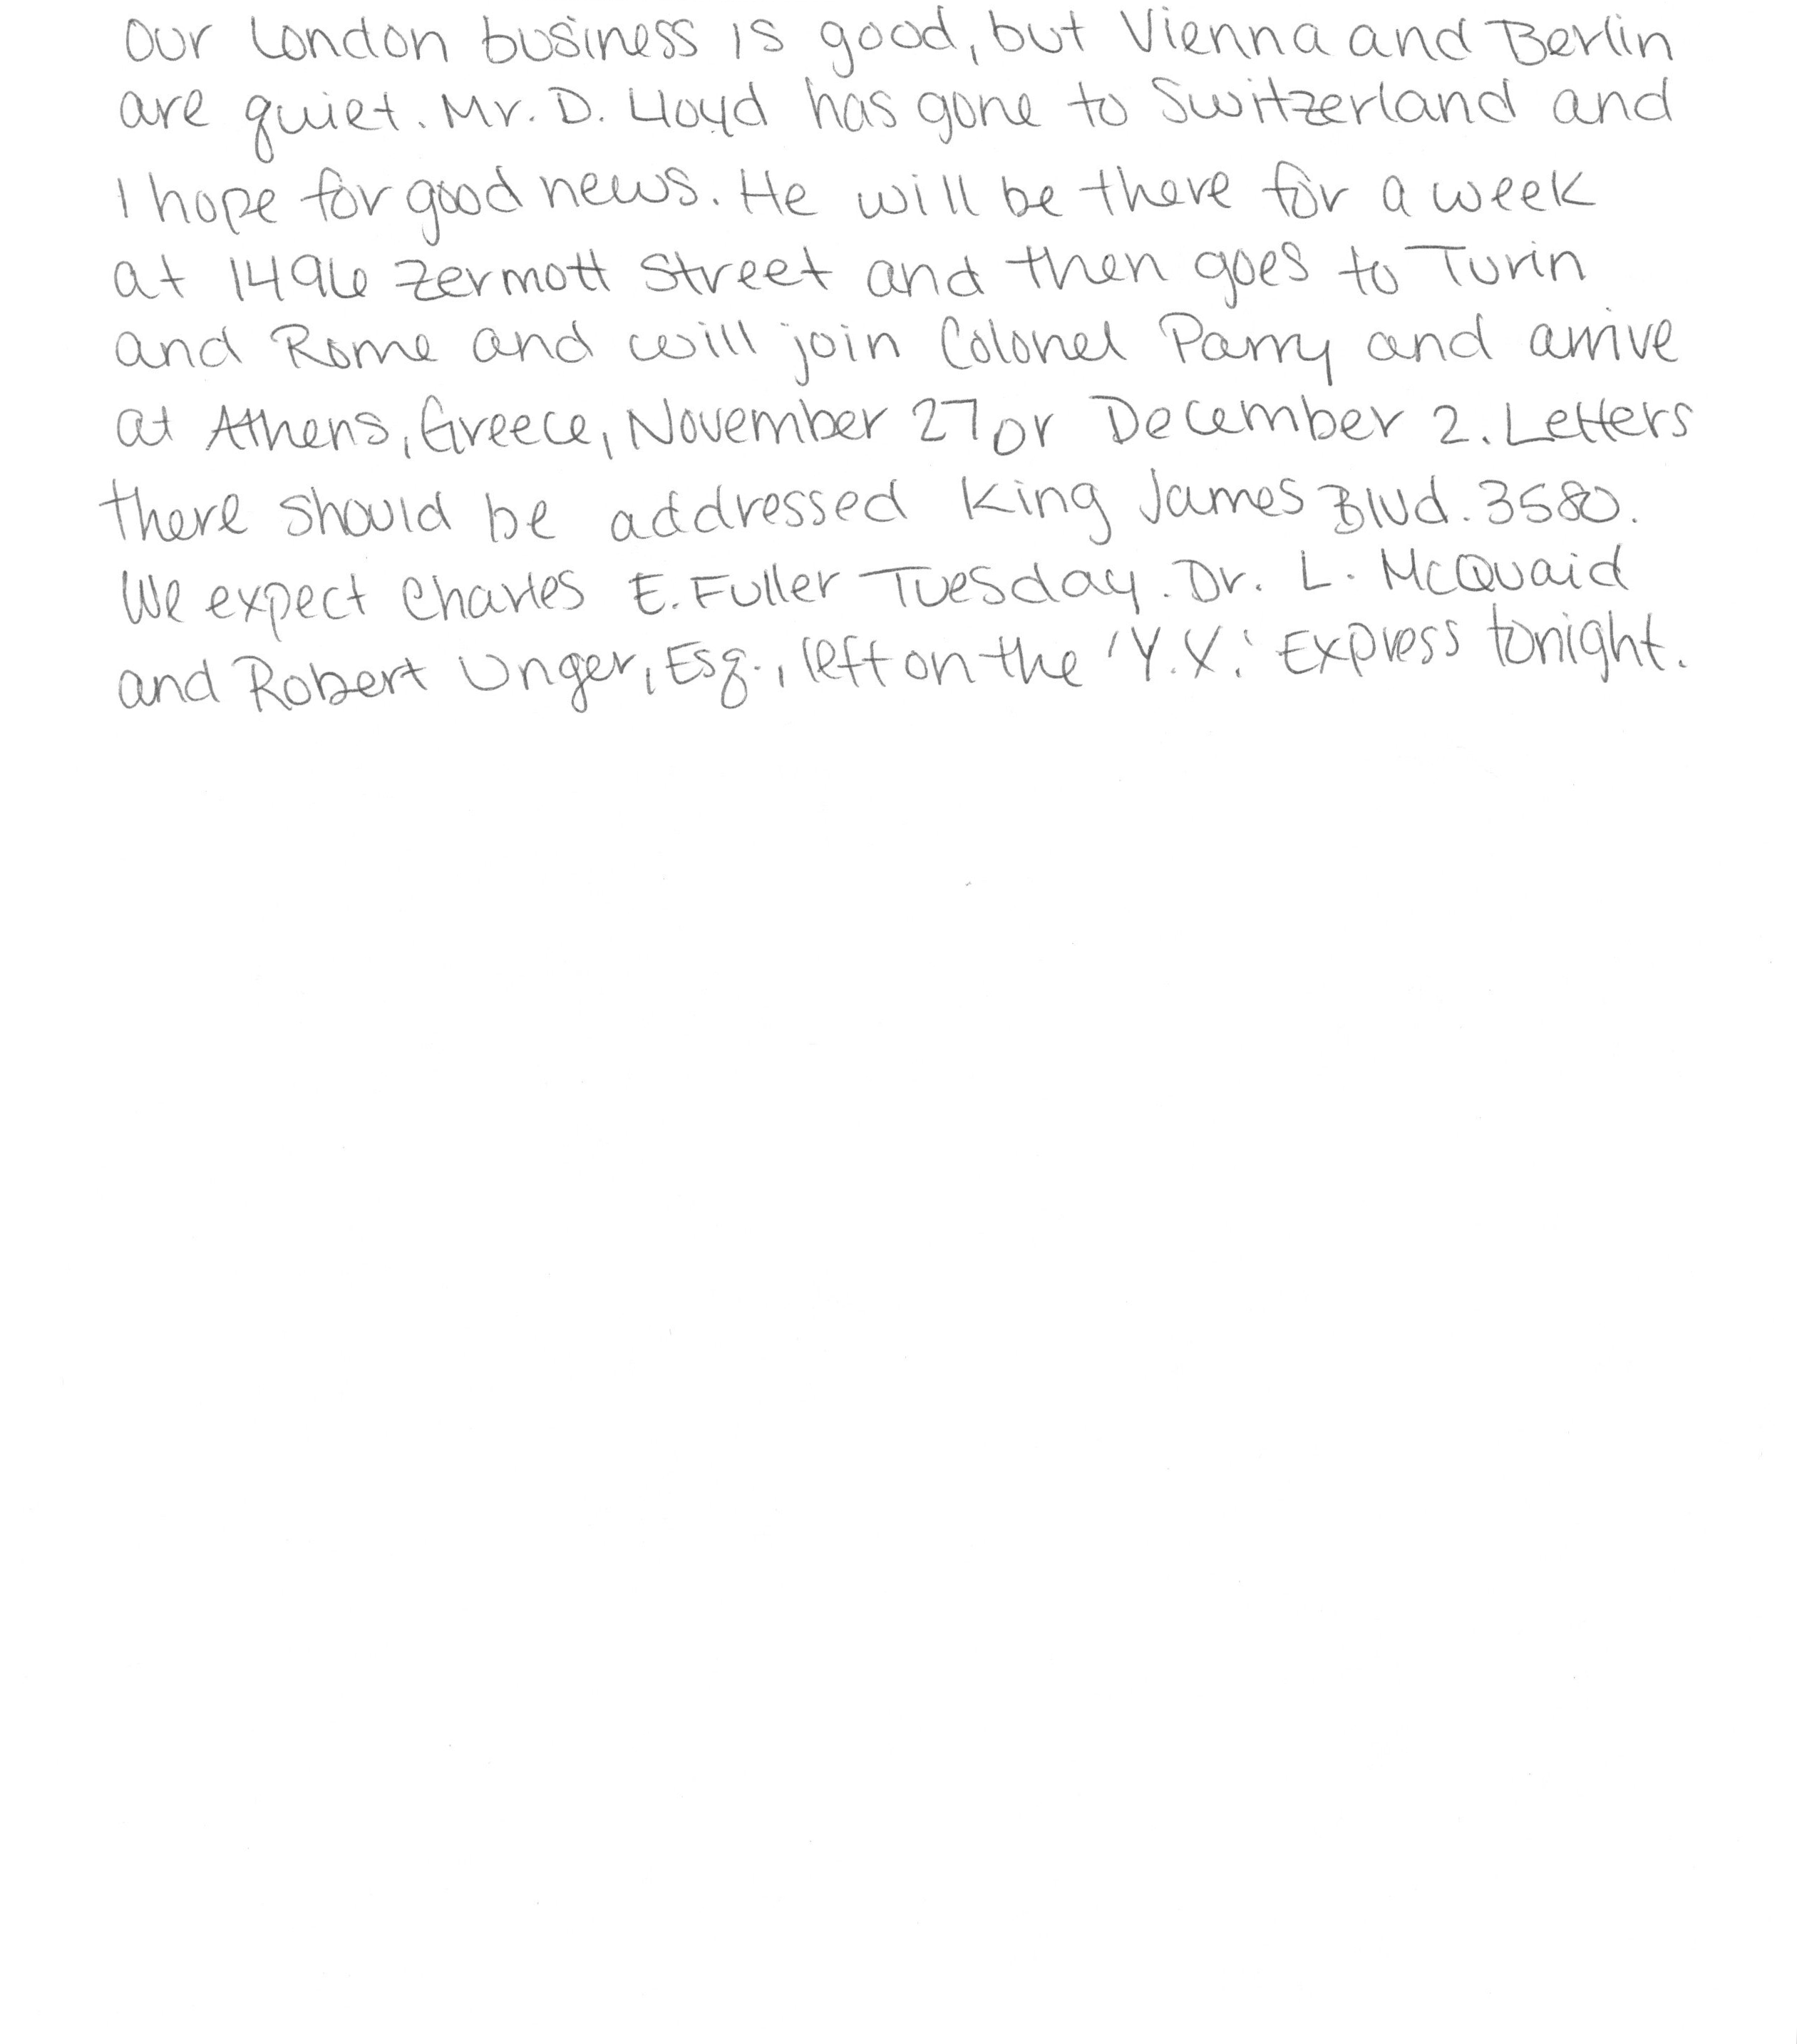 Our London business is good, but Vienna and Berlin
are quiet. Mr. D. Lloyd has gone to Switzerland and
I hope for good news. He will be there for a week
at 1496 Zermott Street and then goes to Turin
and Rome and will join Colonel Parry and arrive
at Athens, Greece, November 27 or December 2. Letters
there should be addressed King James Blvd. 3580.
We expect Charles E. Fuller Tuesday. Dr. L. McQuaid
and Robert Unger, Esq., left on the 'Y.X.' Express tonight.